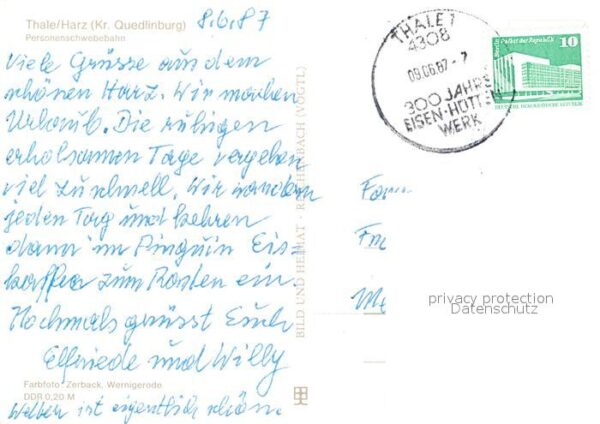 Thale/Harz (Kr. Quedlinburg) 8.6.87
Personenschwebebahn
Viele Grüsse aus dem
schönen Harz. Wir machen
Urlaub. Die ruhigen
erholsamen Tage vergehen
viel zu schnell. Wir wandern
jeden Tag und kehren
dann im Pinguin Eis=
kaffee zum Rasten ein.
Nochmals grüsst Euch
Elfriede und Willy
Farbfoto: Zerback, Wernigerode
DDR 0,20 M
ist eigentlich schön.
BILD UND HEIMAT · REICHENBACH (VOGTL)
THALE 1
4308
09.06.87 - 7
300 JAHRE
EISEN-HÜTTEN
WERK
Berlin, Palast der Republik
10
DEUTSCHE DEMOKRATISCHE REPUBLIK
Fam
privacy protection
Datenschutz